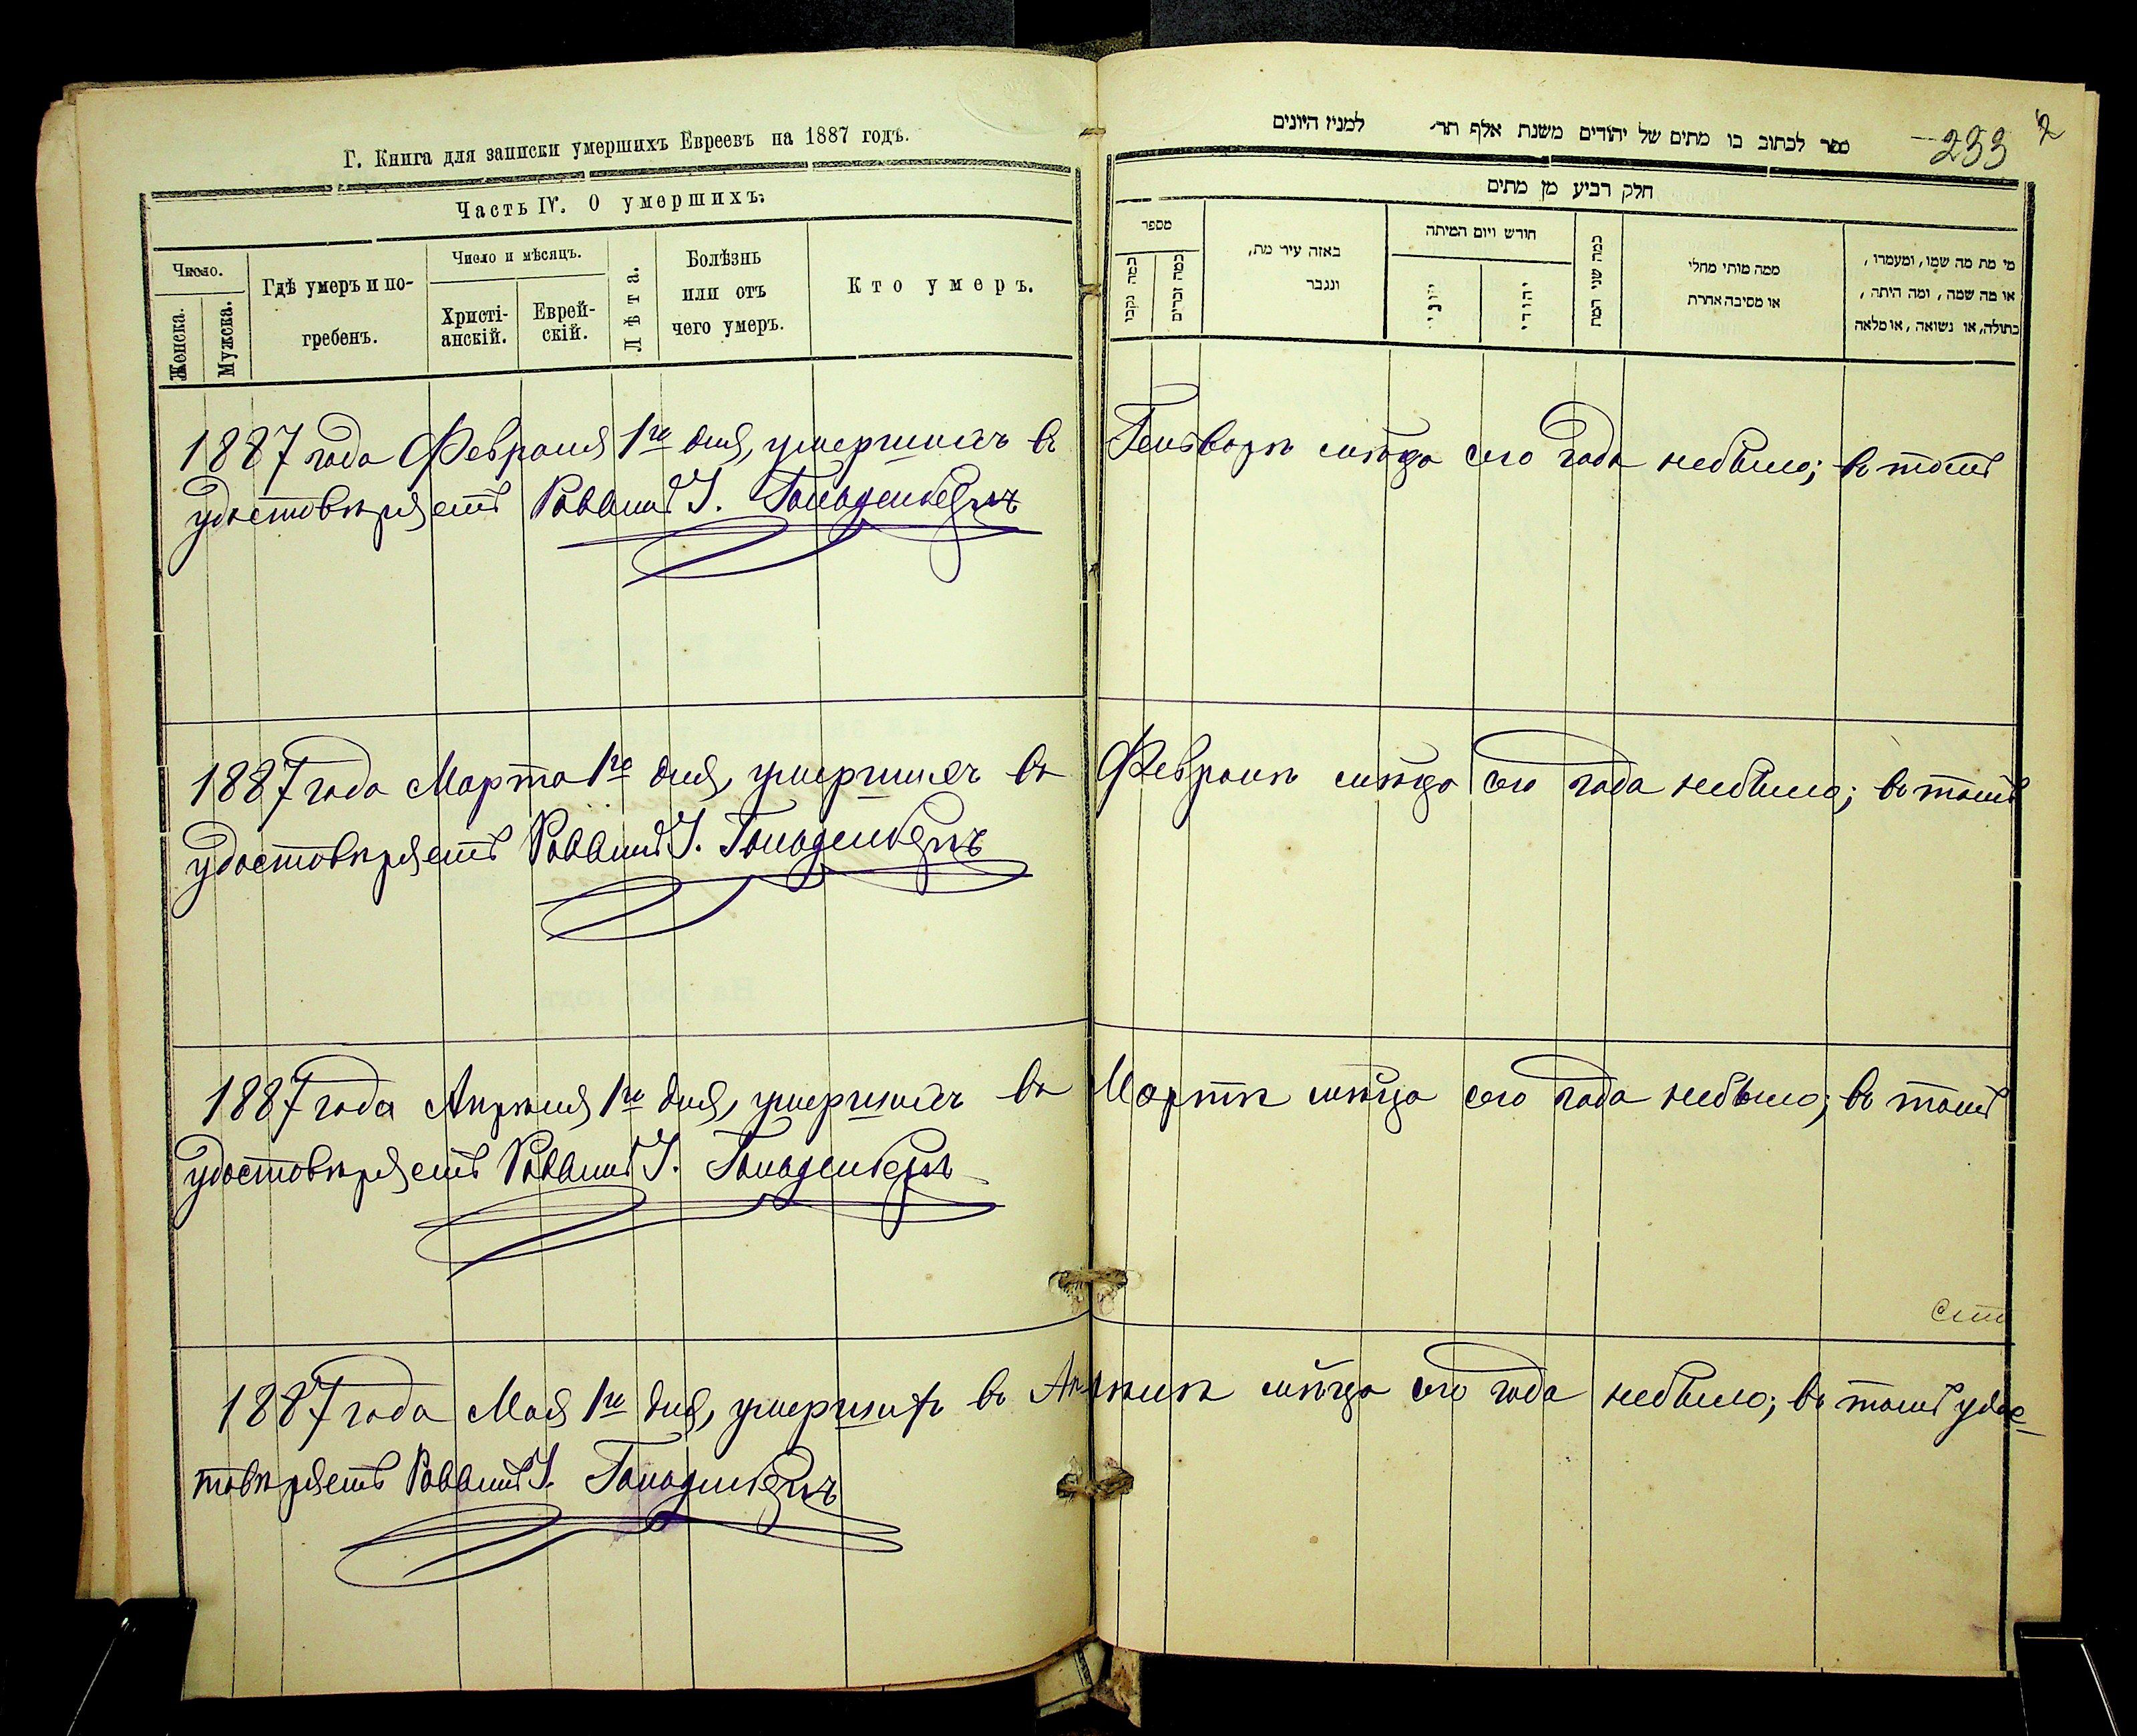 Г. Книга для записки умершихъ Евреевъ на 1887 годъ.
Часть IV. О умершихъ.
Число.
Женска.
Мужска.
Гдѣ умеръ и по-
гребенъ.
Число и мѣсяцъ.
Христі-
анскій.
Еврей-
скій.
Лѣта.
Болѣзнь
или отъ
чего умеръ.
Кто умеръ.
233
2
ספר לכתוב בו מתים של יהודים משנת אלף תר׳ למנין היונים
חלק רביע מן מתים
מספר
כמה נקבו
כמה זכרים
באזה עיר מת,
ונגבר
חודש ויום המיתה
יוני
יהודי
כמה שני המת
ממה מותי מחלי
או מסיבה אחרת
מי מת מה שמו, ומעמרו,
או מה שמה, ומה היתה,
בתולה, או נשואה, או מלאה
1887 года Февраля 1го дня, умершихъ въ Генварѣ мѣцѣ сего года небыло; въ томъ
удостовѣряетъ Раввинъ І. Гольденбергъ
1887 года Марта 1го дня, умершихъ въ Февралѣ мѣцѣ сего года небыло; въ томъ
удостовѣряетъ Раввинъ І. Гольденбергъ
1887 года Апрѣля 1го дня, умершихъ въ Мартѣ мѣцѣ сего года небыло; въ томъ
удостовѣряетъ Раввинъ І. Гольденбергъ
1887 года Мая 1го дня, умершихъ въ Апрѣлѣ мѣцѣ сего года небыло; въ томъ удос-
товѣряетъ Раввинъ І. Гольденбергъ